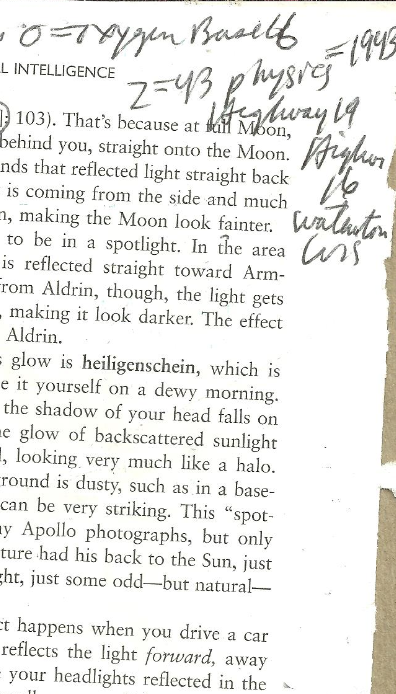 O=oxygen Base16
L INTELLIGENCE
=1943
Z=43 physics
Highway 19
103). That's because at full Moon,
behind you, straight onto the Moon.
nds that reflected light straight back
16
is coming from the side and much
n, making the Moon look fainter.
to be in a spotlight. In the area
is reflected straight toward Arm-
rom Aldrin, though, the light gets
, making it look darker. The effect
Aldrin.
s glow is heiligenschein, which is
e it yourself on a dewy morning.
the shadow of your head falls on
e glow of backscattered sunlight
l, looking very much like a halo.
round is dusty, such as in a base-
can be very striking. This "spot-
y Apollo photographs, but only
ture had his back to the Sun, just
ght, just some odd—but natural—
ct happens when you drive a car
reflects the light forward, away
your headlights reflected in the